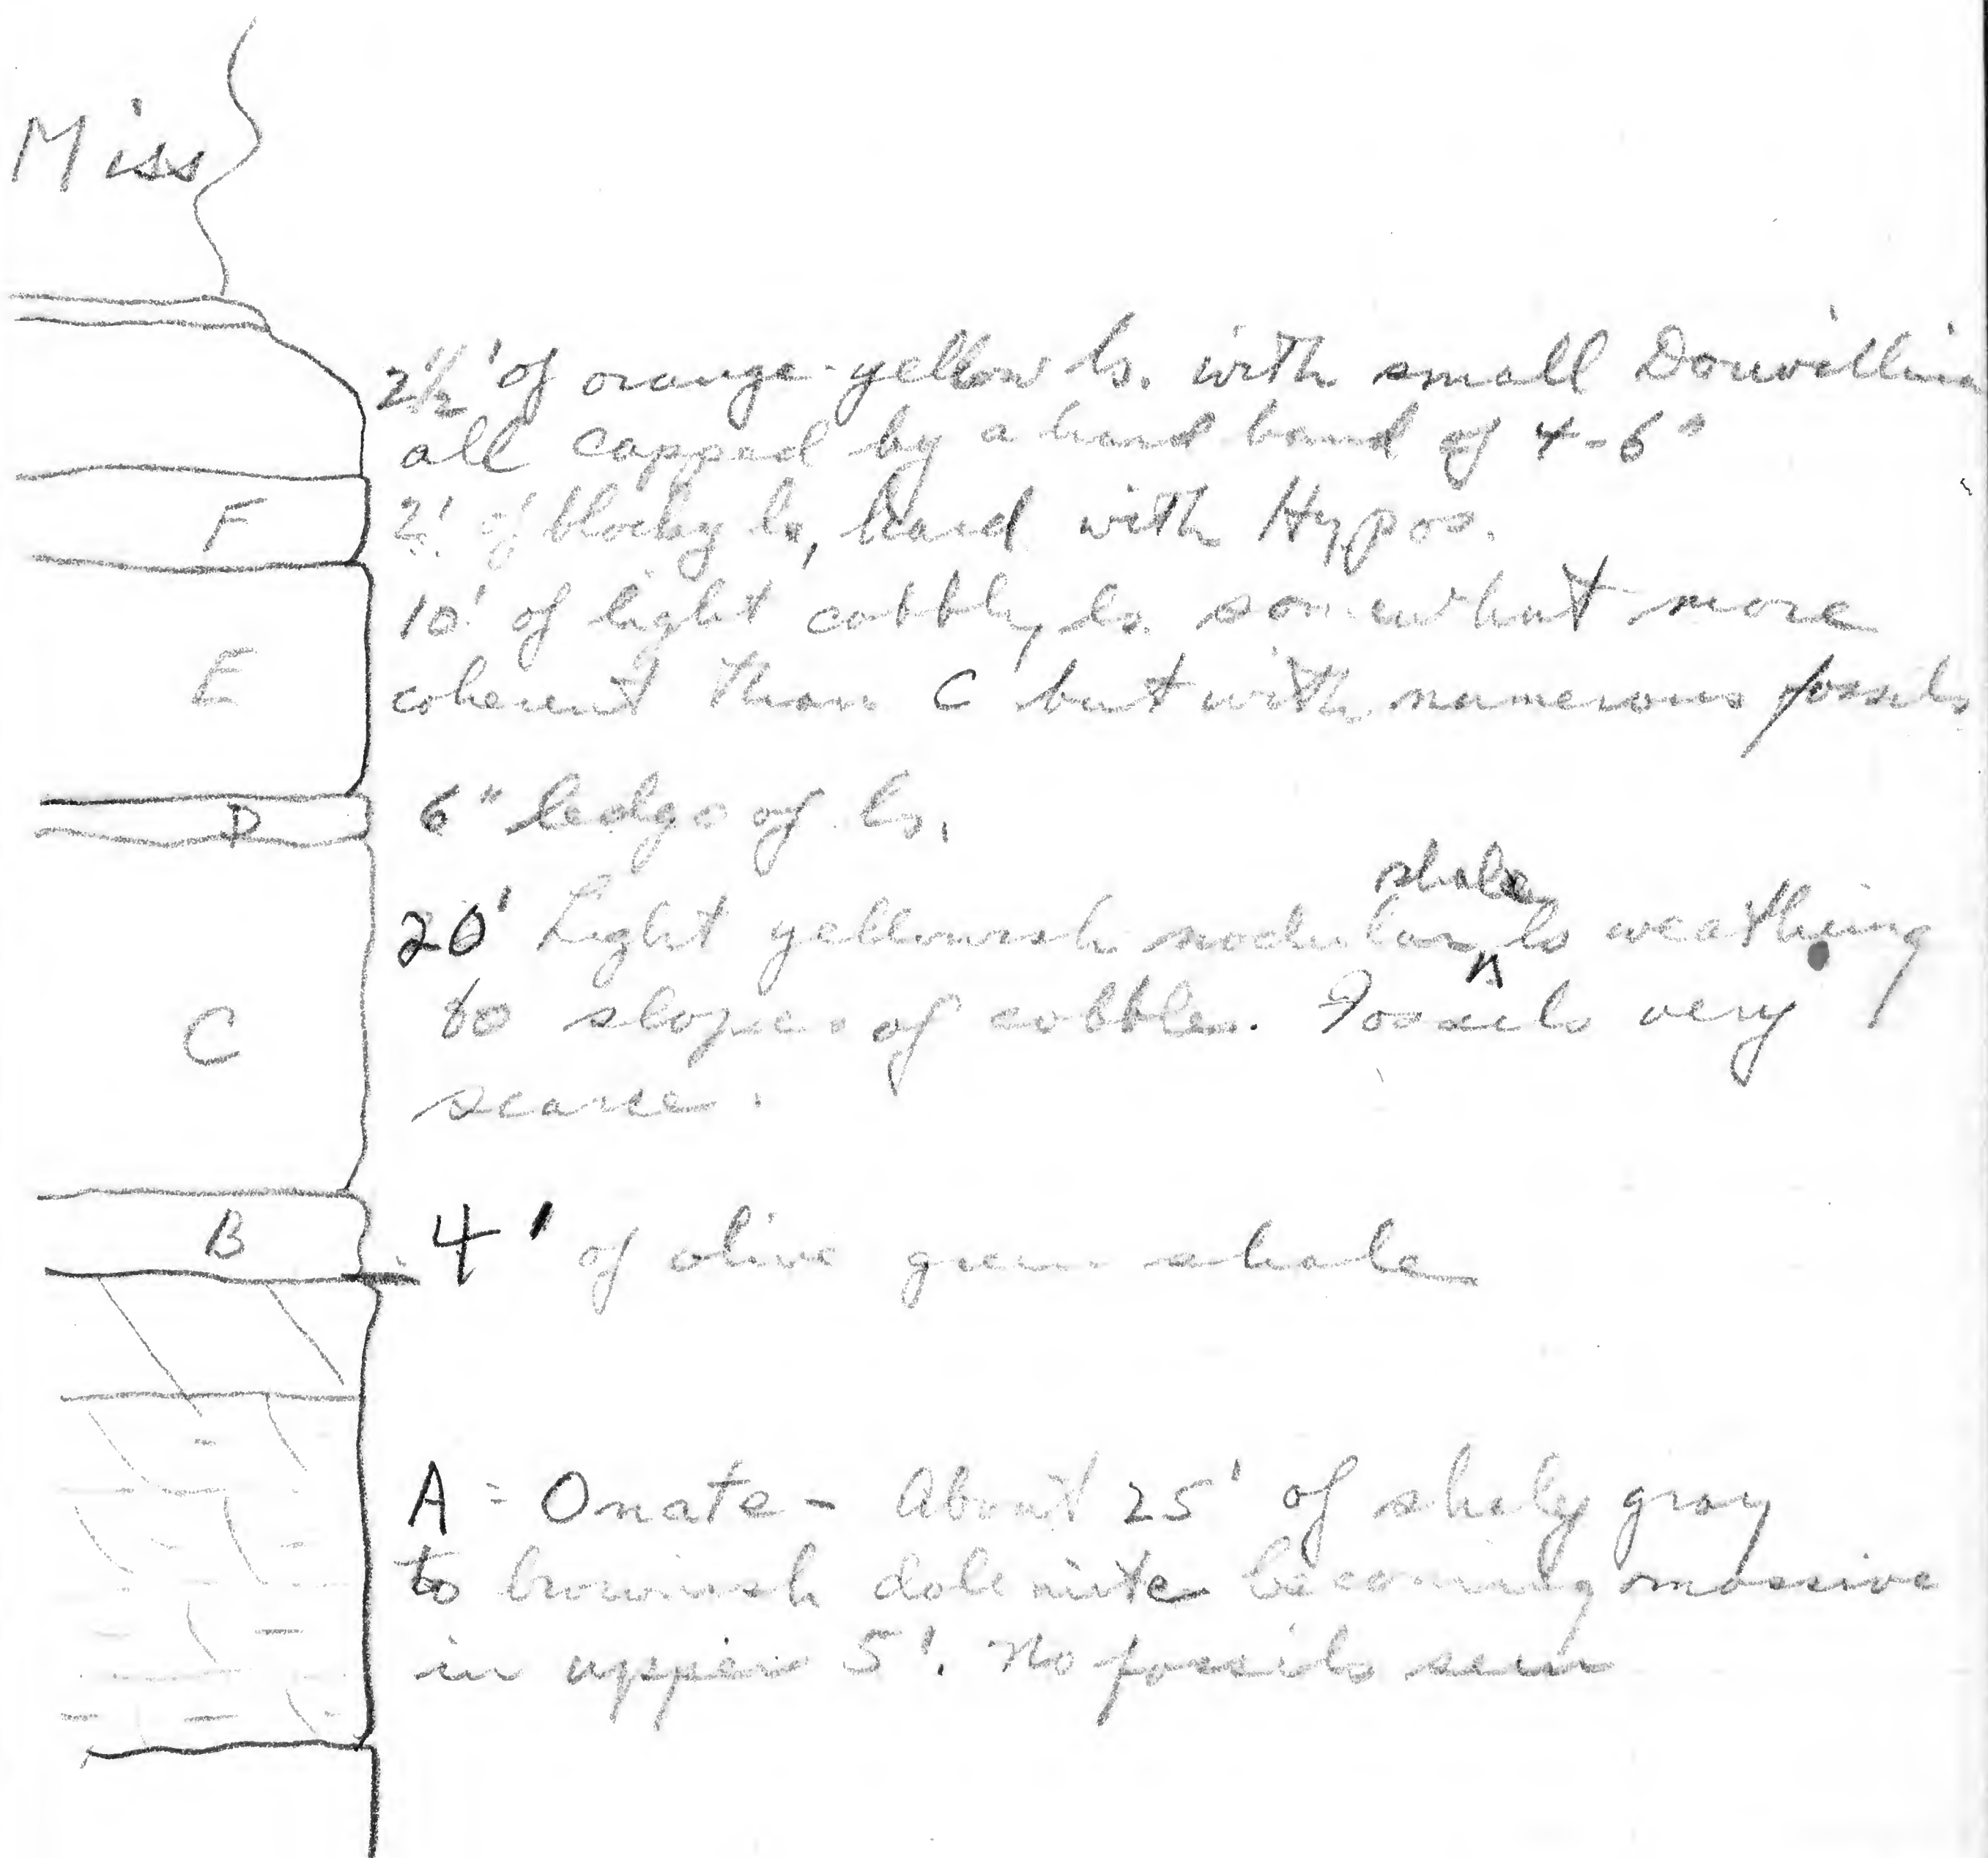 Miss
2½' of orange-yellow ls. with small Douvillina
all capped by a hard band of 4-6"
F 2' of blocky ls, hard with Hypos.
10' of light cobbly ls. somewhat more
E coherent than C but with numerous fossils
D 6" ledge of ls.
shaley
20' Light yellowish nodular ^ ls weathing
C to slopes of cobbles. Fossils very
scarce.
B 4' of olive green shale
A = Onate - About 25' of shaly gray
to brownish dolomite becoming massive
in upper 5'. No fossils seen